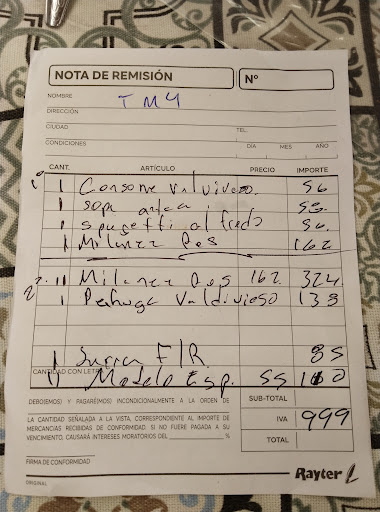 NOTA DE REMISIÓN
Nº
NOMBRE TM4
DIRECCIÓN
CIUDAD TEL.
CONDICIONES DÍA MES AÑO
CANT. ARTÍCULO PRECIO IMPORTE
I Consome Valdivieso. 56
I sopa
I spugetti al 56
I Milanez Res 162
II Milanez Res 162 324
I Pechuga Valdivieso 138
I F/R. 85
CANTIDAD CON LETRA
II Modelo Esp. 55 110
DEBO(EMOS) Y PAGARÉ(MOS) INCONDICIONALMENTE A LA ORDEN DE
LA CANTIDAD SEÑALADA A LA VISTA, CORRESPONDIENTE AL IMPORTE DE
MERCANCÍAS RECIBIDAS DE CONFORMIDAD. SI NO FUERE PAGADA A SU
VENCIMIENTO, CAUSARÁ INTERESES MORATORIOS DEL %
SUB-TOTAL
IVA 999
TOTAL
FIRMA DE CONFORMIDAD
Rayter
ORIGINAL